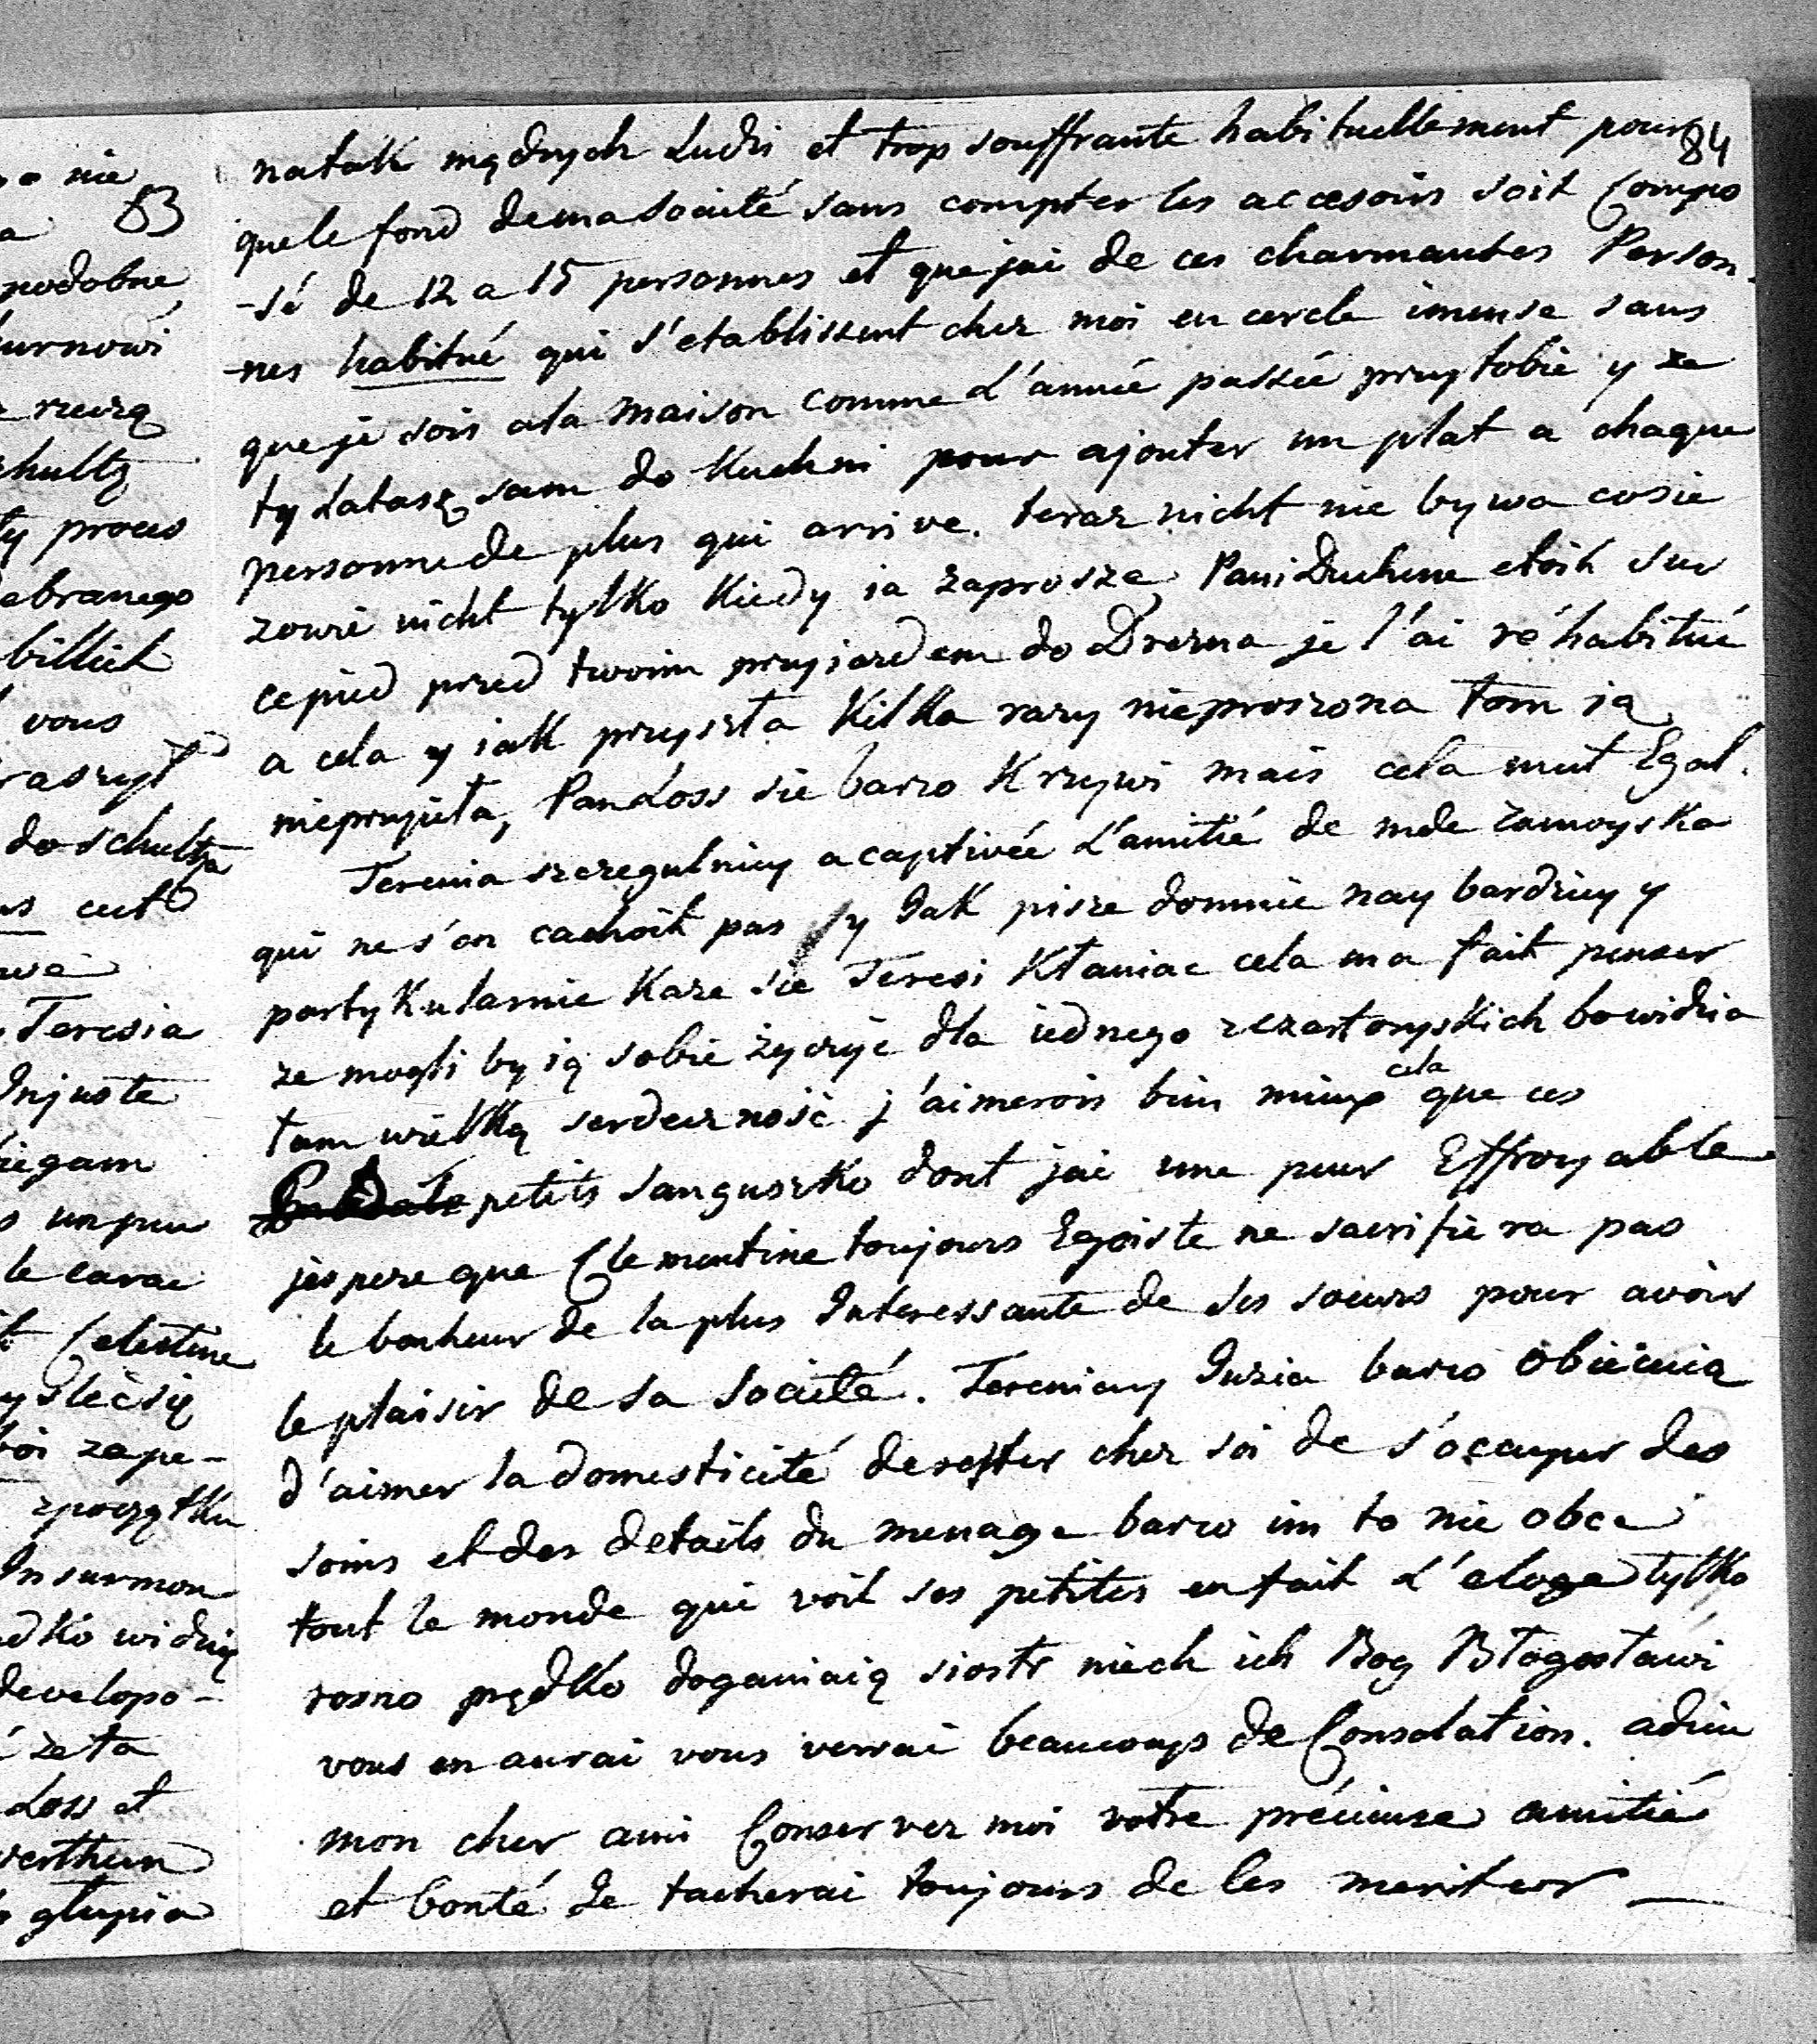 84
natak mędrych Ludzi et trop souffrante habituellement pour
que le fond de ma société sans compter les accesoirs soit Compo
-sé de 12 a 15 personnes et que jai de ces charmantes Person
-nes habitué qui s'etablissent chez moi en cercle imense sans
que je sois a la maison comme L'année passée przytobie y ze
ty Latasz sam do Kuchni pour ajouter un plat a chaque
personne de plus qui arrive. teraz nicht nie bywa cosie
zowie nicht tylko Kiedy ia zaprosze, Pani Duchene etoit sur
ce pied przed twoim przyiazdem do Drezna je l'ai réhabitué
a cela y iak przyszła Kilka razy nieproszona Tom ią
nieprzyieła, Pan Loss sie barzo Krzywi mais cela mut Egal.
Terenia szczegulniey a captivée L'amitié de mde Zamoyska
qui ne s'en cachoit pas y Jak pisze domnie nay bardziey y
partykularnie Kaze sie Teresi Kłaniac cela ma fait penser
ze mogli by ią sobie życzyć dla iednego czartoryskich bo widzia
tam wielką serdeczność j'aimerois bien mieux cela que ces
petits Sanguszko dont jai une peur Effroyable
jespere que Clementine toujours Egoiste ne sacrifiera pas
le bonheur de la plus Interessante de ses soeurs pour avoir
le plaisir de sa Société. Tereniay Juzia barzo obiecuia
d'aimer la domesticité de rester chez soi de s'occuper des
soins et des details du menage barzo im to nie obce
tout le monde qui voit ses petites en fait L'eloge tylko
rosno prędko doganiaią siostr niech ich Bog Błogosławi
vous en aurai vous verrai beaucoups de Consolation. adieu
mon cher ami Conservez moi votre précieuse amitié
et bonté Je tacherai toujours de les meriter

83
nie
podobne
proces
ebranego
billiet
vous
do schultza
Teresia
Injuste
un peu
le carac
Celestine
zape-
zpoczątku
Insurmon
widzię
develope-
że ta
Loss et
głupia